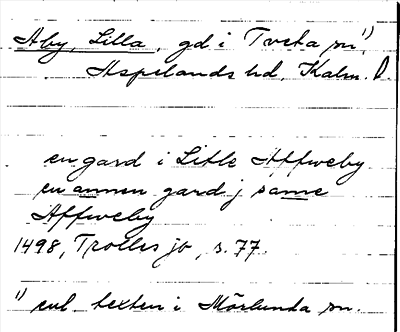 Åby, Lilla, gd i Tveta sn¹⁾
Aspelands hd, Kalm. l
en gard i Litle Affweby
en annen gard j samme
Affweby
1498, Trolles jb, s. 77.
¹⁾ enl. texten i Mörlunda sn.